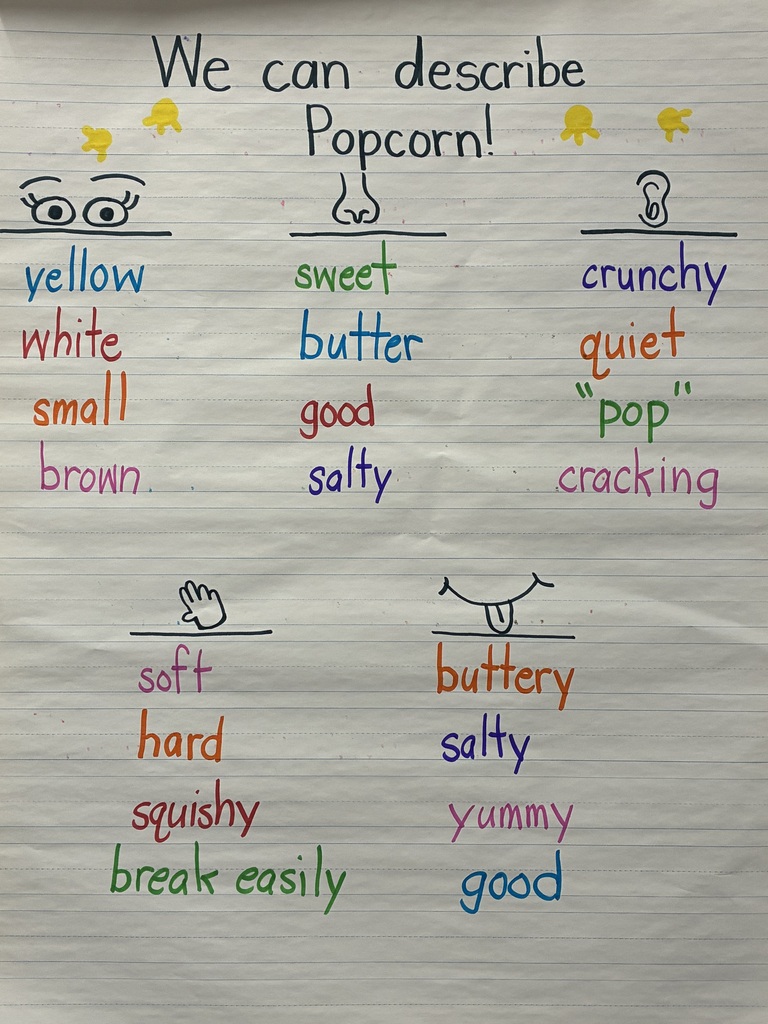 We can describe
Popcorn!
yellow
white
small
brown
sweet
butter
good
salty
crunchy
quiet
"pop"
cracking
soft
hard
squishy
break easily
buttery
salty
yummy
good